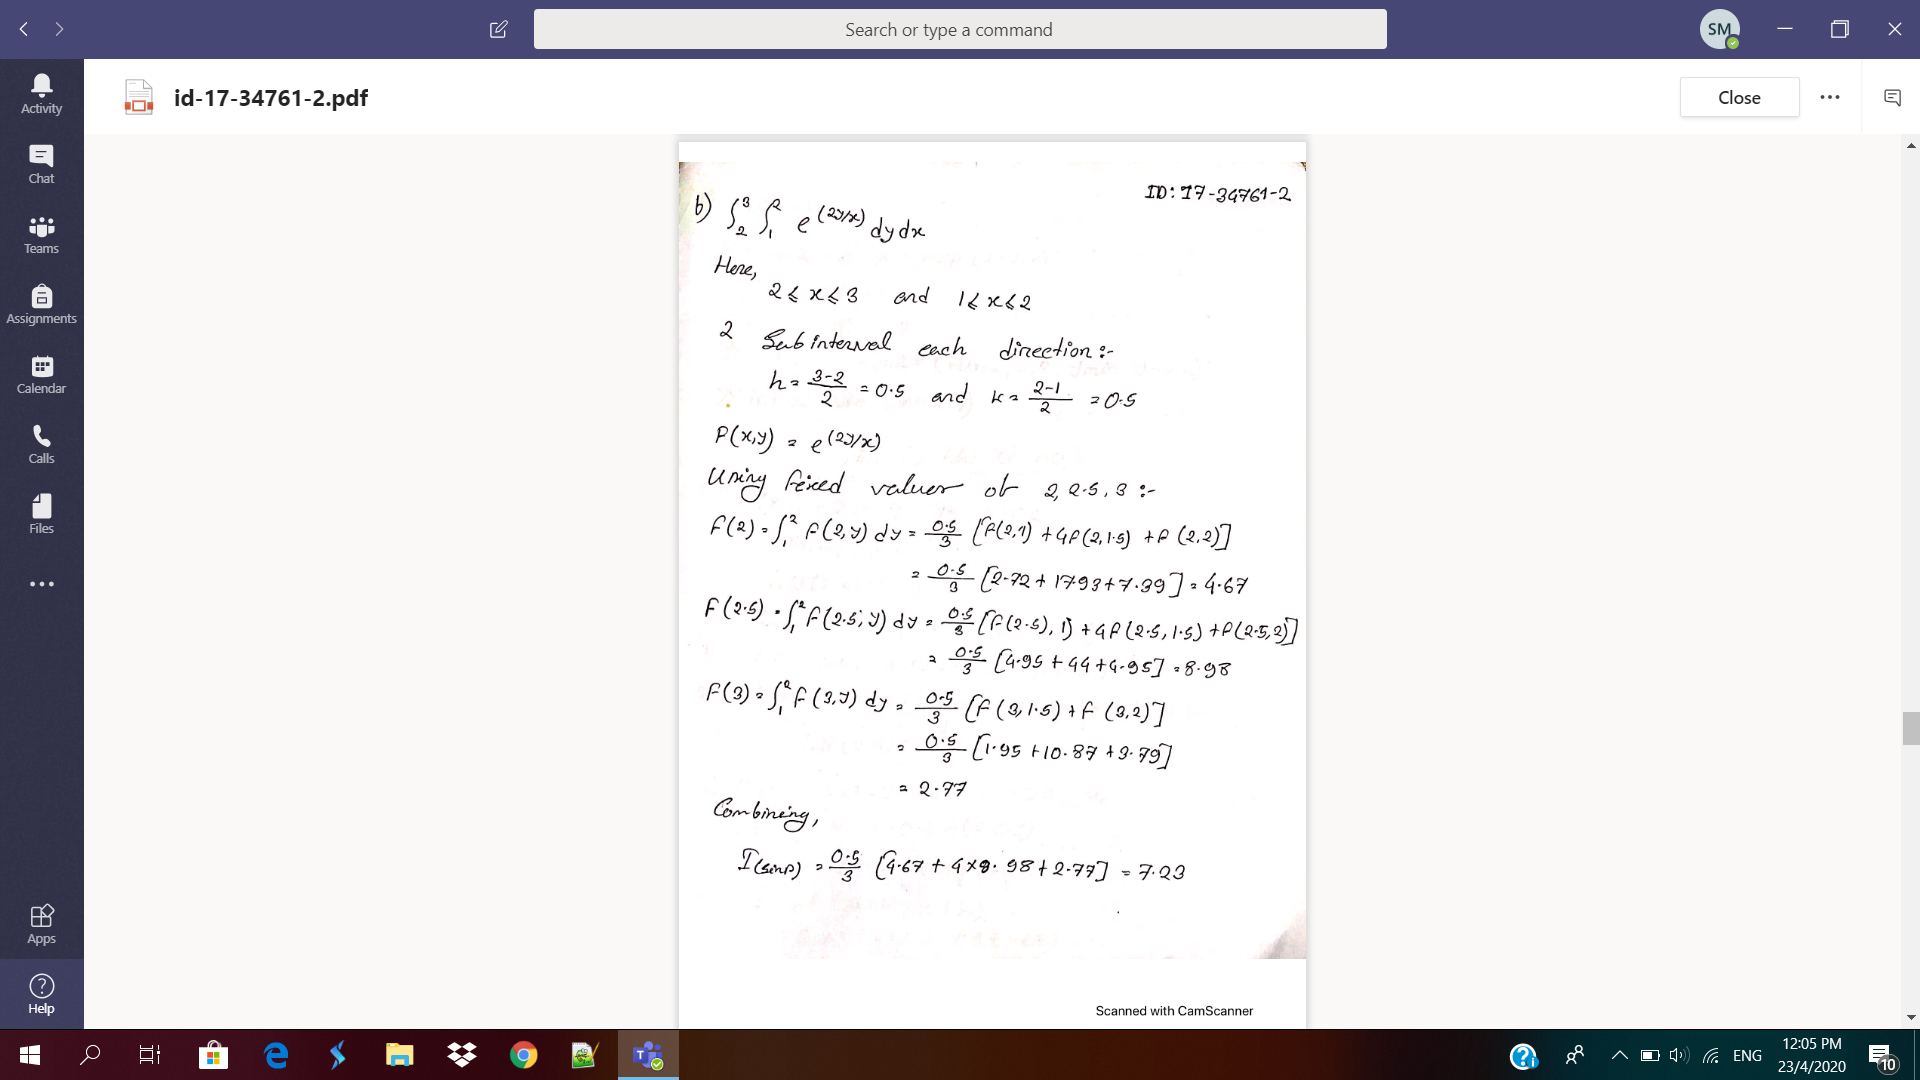 Search or type a command
SM
Activity
Chat
Teams
Assignments
Calendar
Calls
Files
Apps
Help
id-17-34761-2.pdf
Close
ID: 17-34761-2
b) ∫₂³ ∫₁² e^(2y/x) dy dx
Here,
2 ≤ x ≤ 3 and 1 ≤ x ≤ 2
2 Subinterval each direction:-
h = (3-2)/2 = 0.5 and k = (2-1)/2 = 0.5
f(x,y) = e^(2y/x)
Using fixed values of 2, 2.5, 3 :-
F(2) = ∫₁² f(2,y) dy = 0.5/3 [f(2,1) + 4f(2,1.5) + f(2,2)]
= 0.5/3 [2.72 + 17.93 + 7.39] = 4.67
F(2.5) = ∫₁² f(2.5,y) dy = 0.5/3 [f(2.5),1) + 4f(2.5,1.5) + f(2.5,2)]
= 0.5/3 [4.95 + 44 + 4.95] = 8.98
F(3) = ∫₁² f(3,y) dy = 0.5/3 [f(3,1.5) + f(3,2)]
= 0.5/3 [1.95 + 10.87 + 3.79]
= 2.77
Combining,
I(simp) = 0.5/3 [4.67 + 4×8.98 + 2.77] = 7.23
Scanned with CamScanner
ENG
12:05 PM
23/4/2020
10